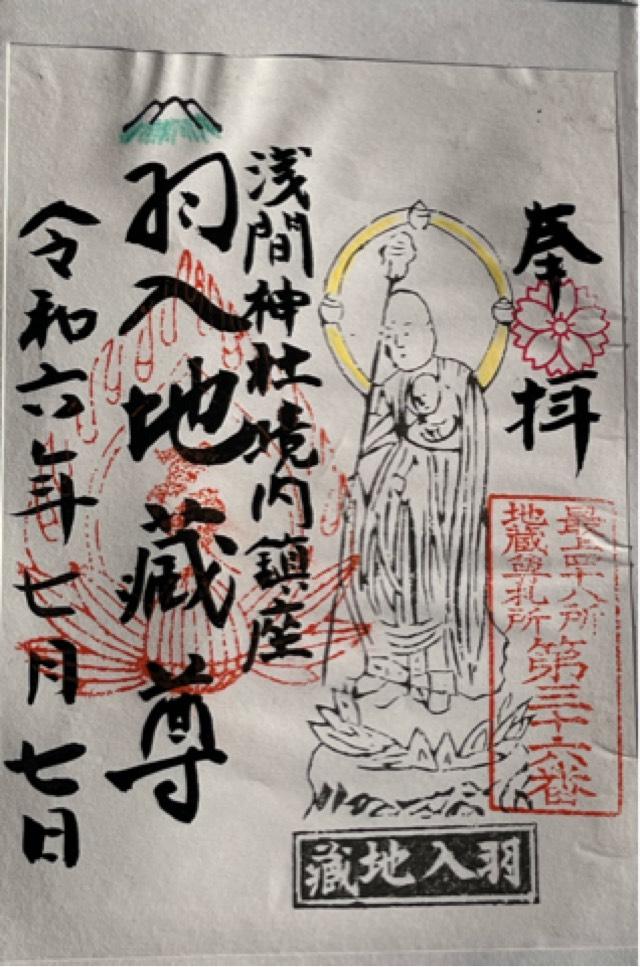 奉拝
最上四十八所
地蔵尊札所
第三十六番
浅間神社境内鎮座
羽入地蔵尊
令和六年七月七日
羽入地蔵